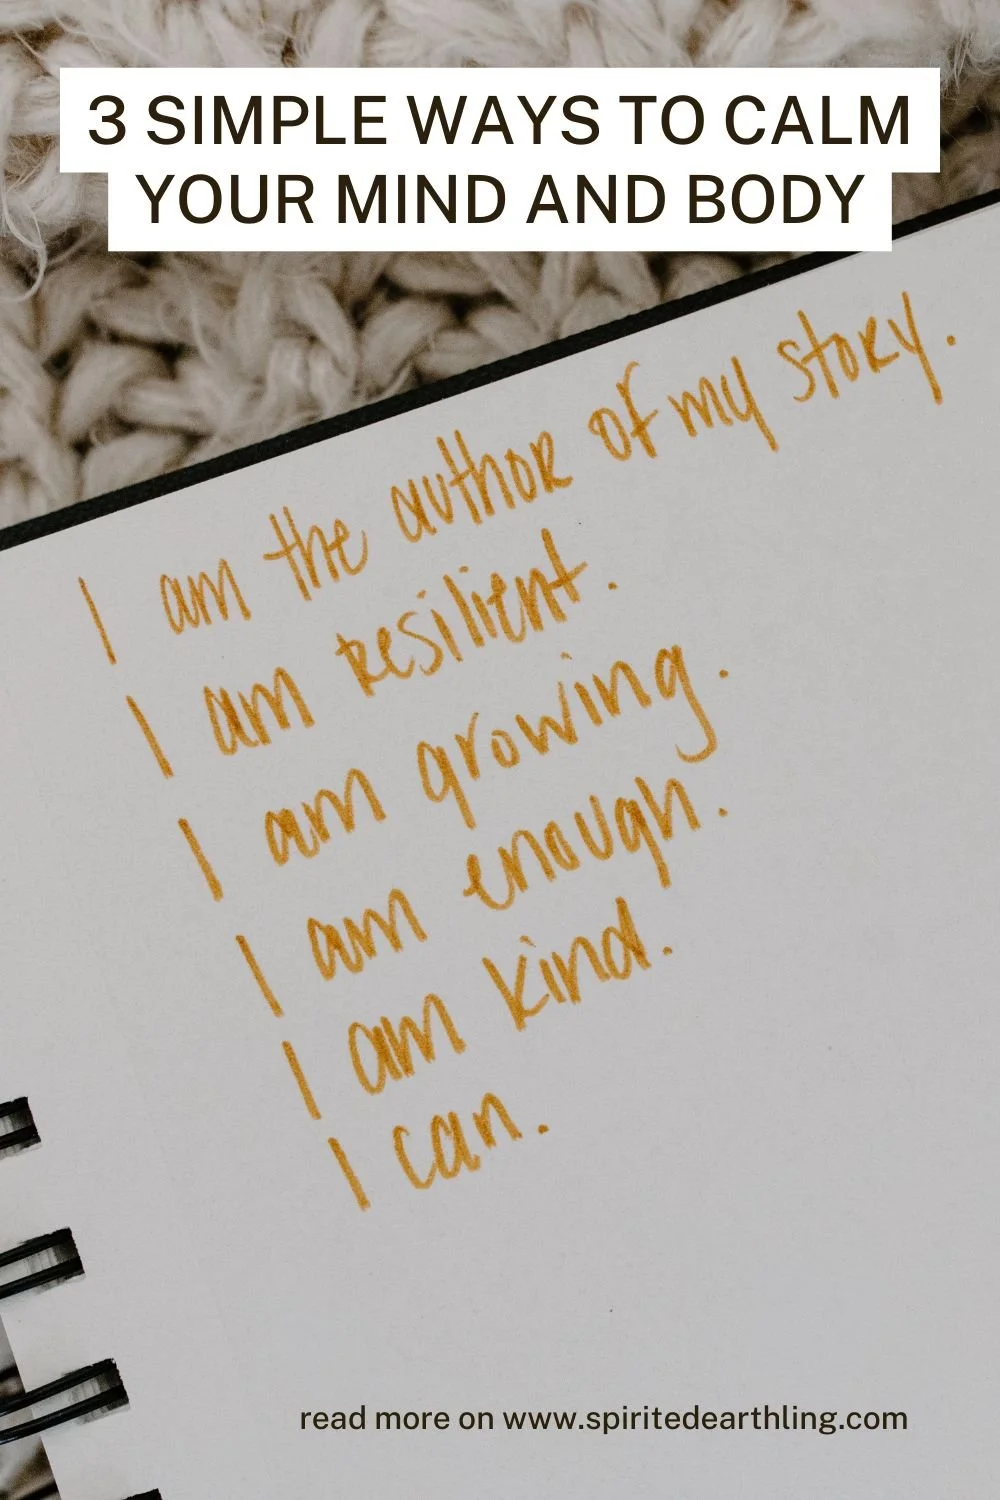 3 SIMPLE WAYS TO CALM
YOUR MIND AND BODY
I am the author of my story.
I am resilient.
I am growing.
I am enough.
I am kind.
I can.
read more on www.spiritedearthling.com